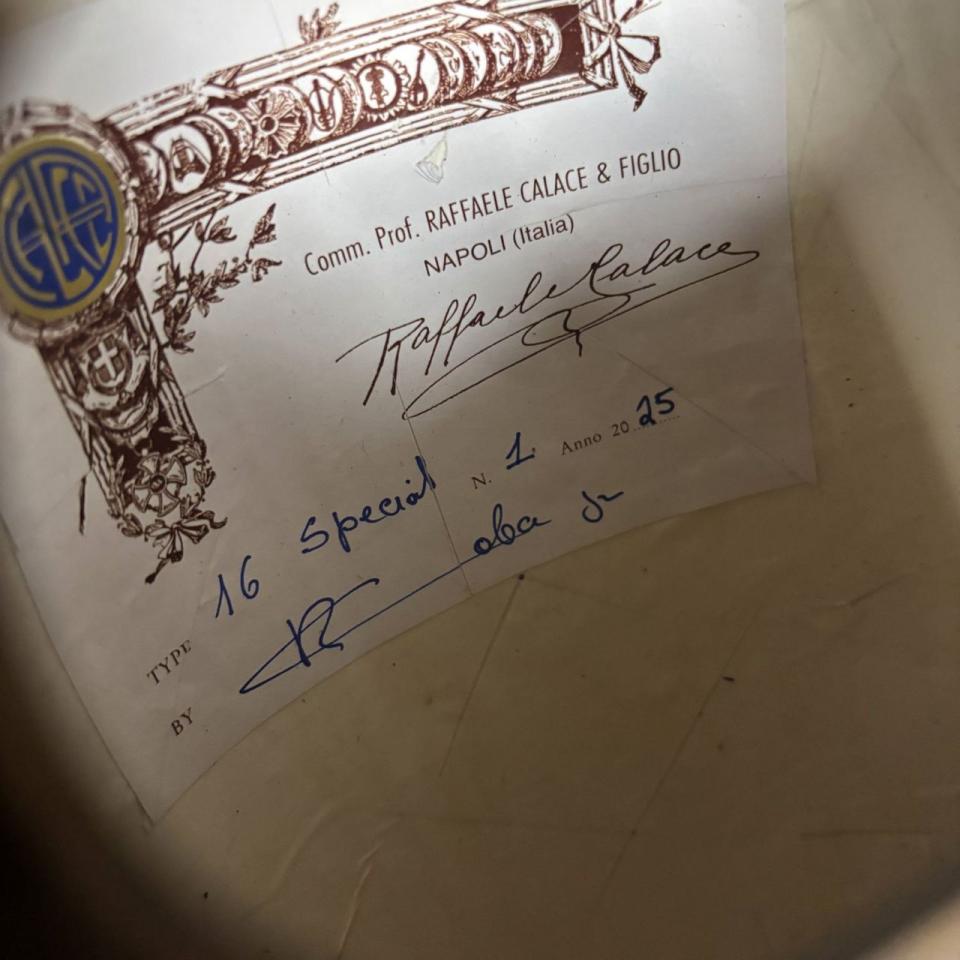 CALACE
Comm. Prof. RAFFAELE CALACE & FIGLIO
NAPOLI (Italia)
Raffaele Calace
TYPE 16 Special N. 1 Anno 2025
BY jr